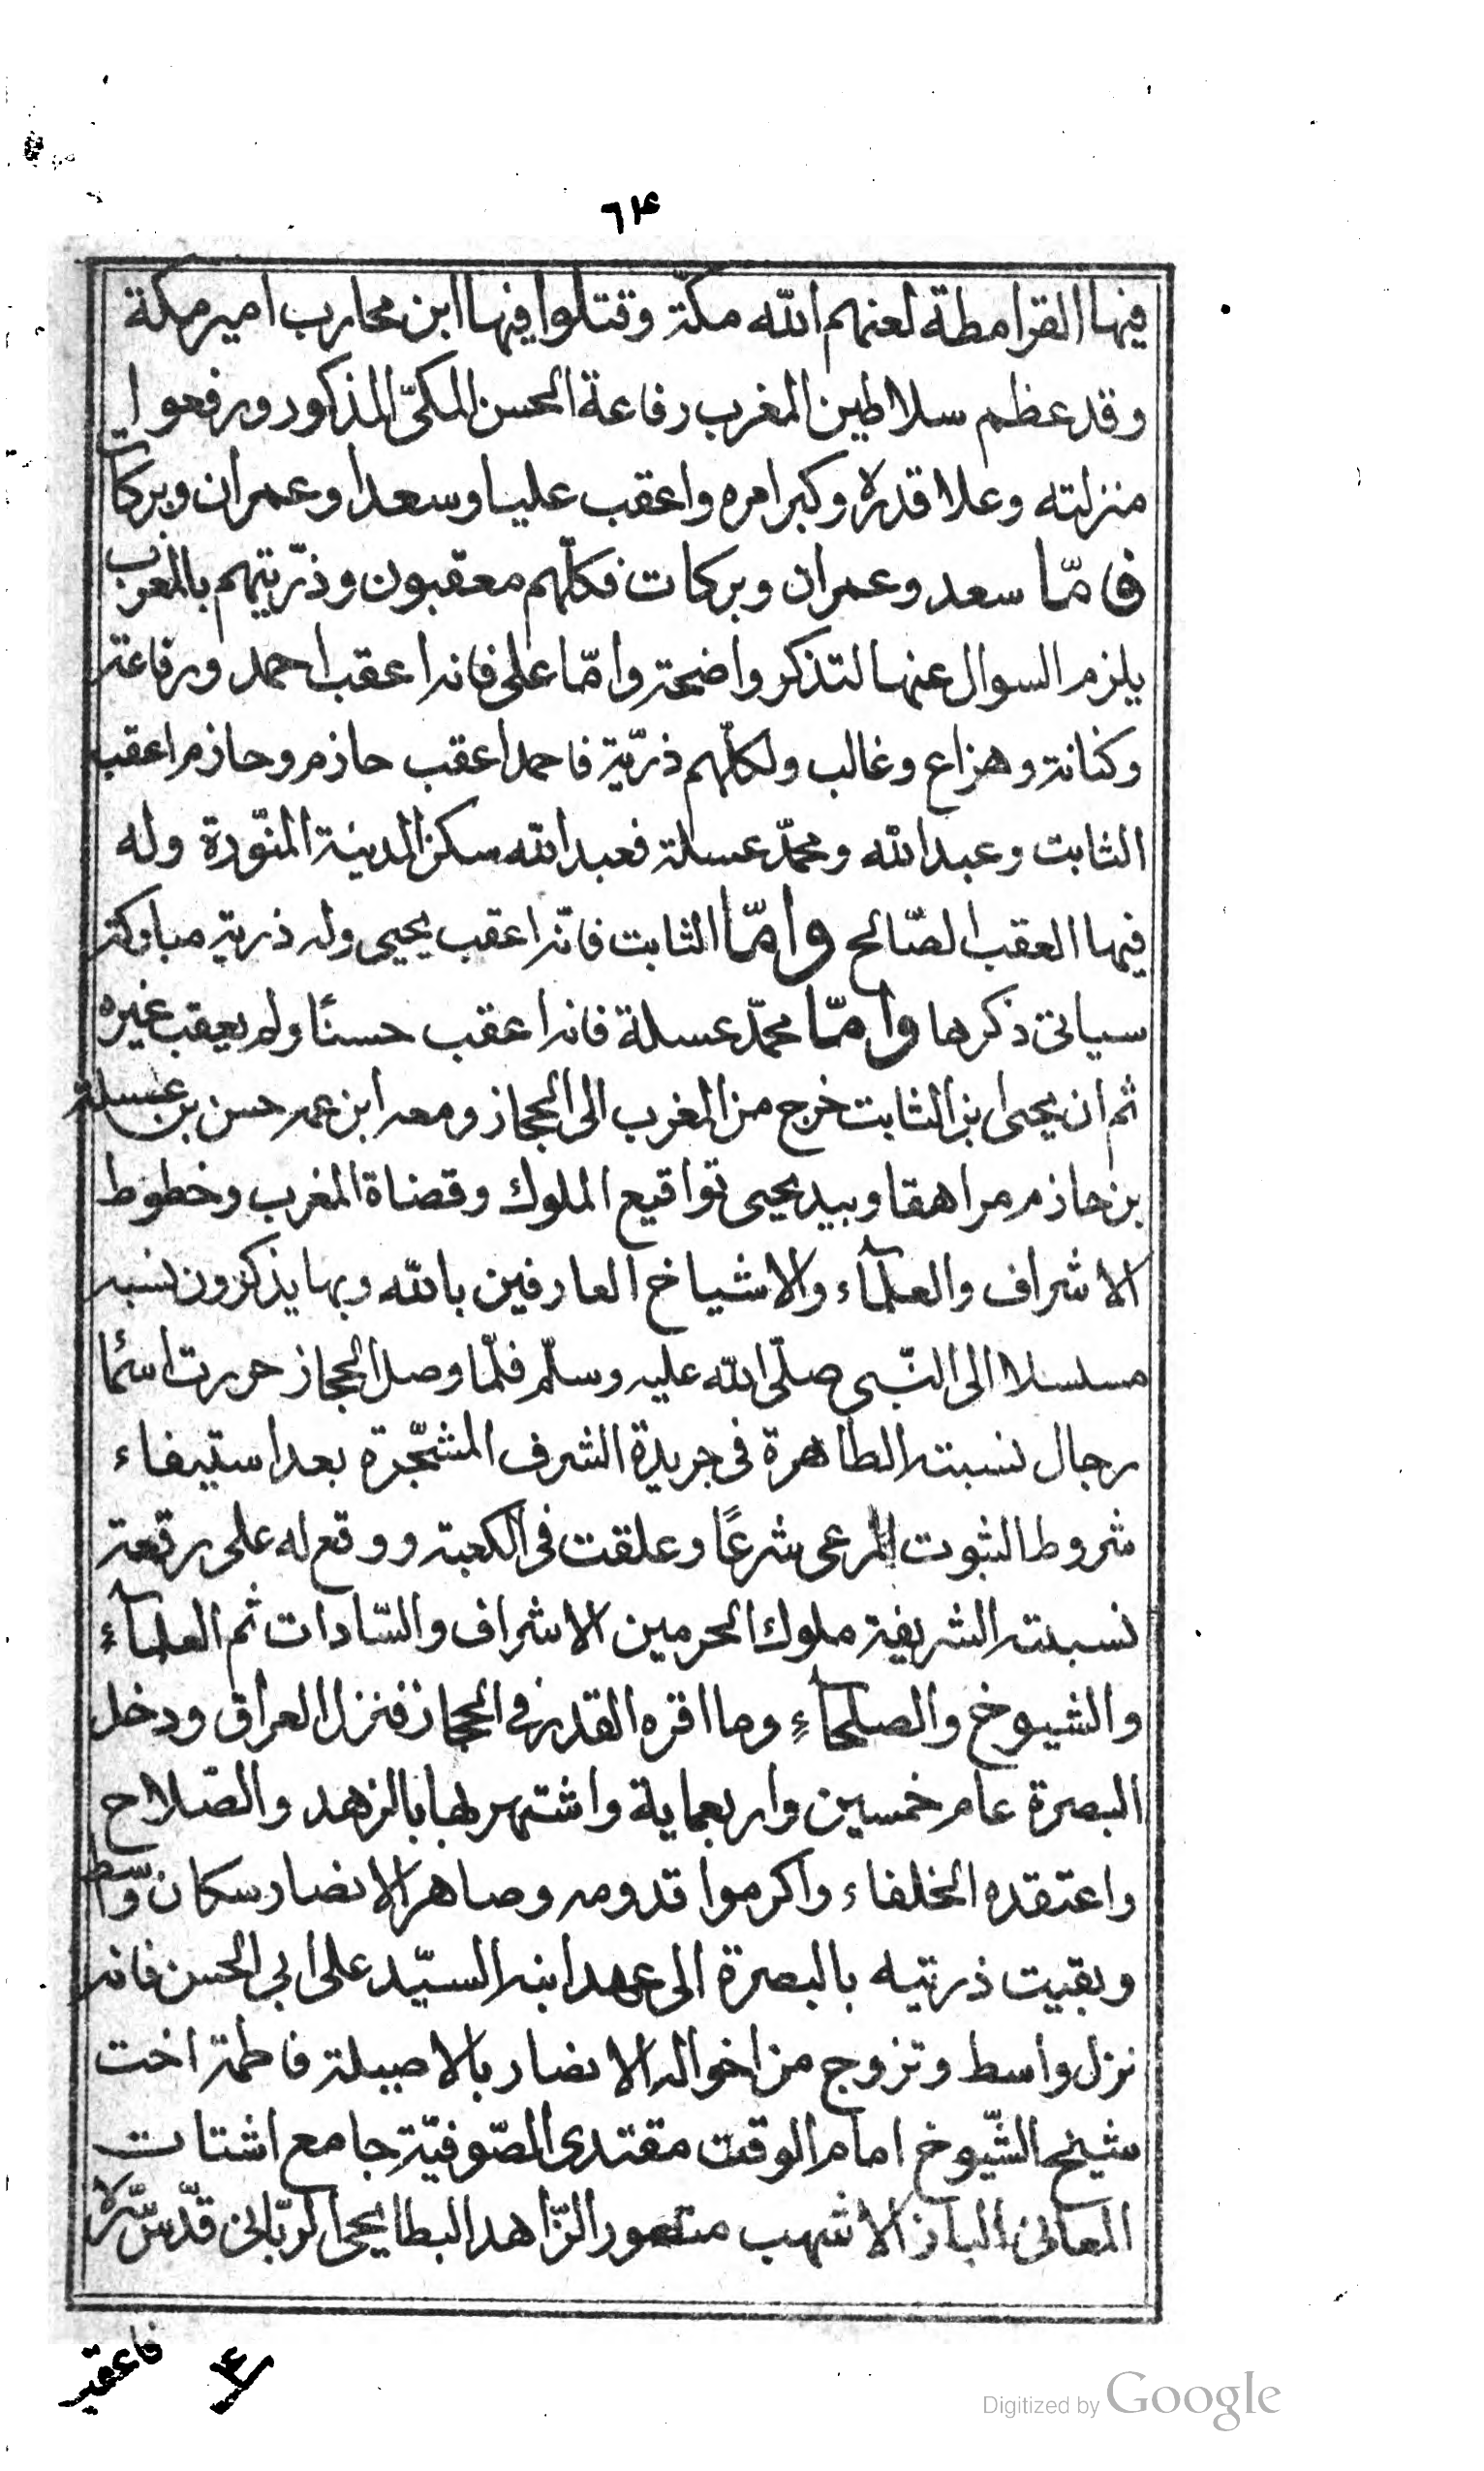 ٦٤
فيها القرامطة لعنهم الله مكة وقتلوا فيها ابن محارب امير مكة
وقد عظم سلاطين المغرب رفاعة الحسن المكىّ المذكور ورفعوا
منزلته وعلا قدره وكبر امره واعقب عليا وسعدا وعمران وبركات
فامّا سعد وعمران وبركات فكلّهم معقبون وذرّيتهم بالمغرب
يلزم السوال عنها لتذكر واضحة وامّا على فانه اعقب احمد ورفاعة
وكنانة وهزاع وغالب ولكلّهم ذرّية فاحمد اعقب حازم وحازم اعقب
الثابت وعبد الله ومحمّد عسلة فعبد الله سكن المدينة المنّورة وله
فيها العقب الصّالح وامّا الثابت فانّه اعقب يحيى وله ذرية مباركة
سياتى ذكرها وامّا محمّد عسلة فانه اعقب حسنًا ولم يعقب غيره
ثم ان يحيى ابن الثابت خرج من المغرب الى الحجاز ومعه ابن عمه حسن بن عسلة
بن حازم مراهقا وبيد يحيى تواقيع الملوك وقضاة المغرب وخطوط
الاشراف والعلمآء والاشياخ العارفين بالله وبها يذكرون نسبه
مسلسلا الى النّبى صلّى الله عليه وسلّم فلمّا وصل الحجاز حررت اسمًا
رجال نسبته الطاهرة فى جريدة الشرف المشجّرة بعد استيفاء
شروط الثبوت المرعى شرعًا وعلقت فى الكعبة ووقع له على رقعة
نسبته الشريفة ملوك الحرمين الاشراف والسّادات ثم العلمآء
والشيوخ والصلحآء وما اقره القدر فى الحجاز فنزل العراق ودخل
البصرة عام خمسين واربعماية واشتهر بها بالزهد والصّلاح
واعتقده الخلفاء واكرموا قدومه وصاهر الانصار سكان واسط
وبقيت ذريته بالبصرة الى عهد ابنه السيّد على ابى الحسن فانه
نزل واسط وتزوج من اخواله الانصار بالاصيلة فاطمة اخت
شيخ الشّيوخ امام الوقت مقتدى الصّوفيّة جامع اشتات
المعانى الباز الاشهب منصور الزّاهد البطايحى الربّانى قدّس سّره
فاعقب